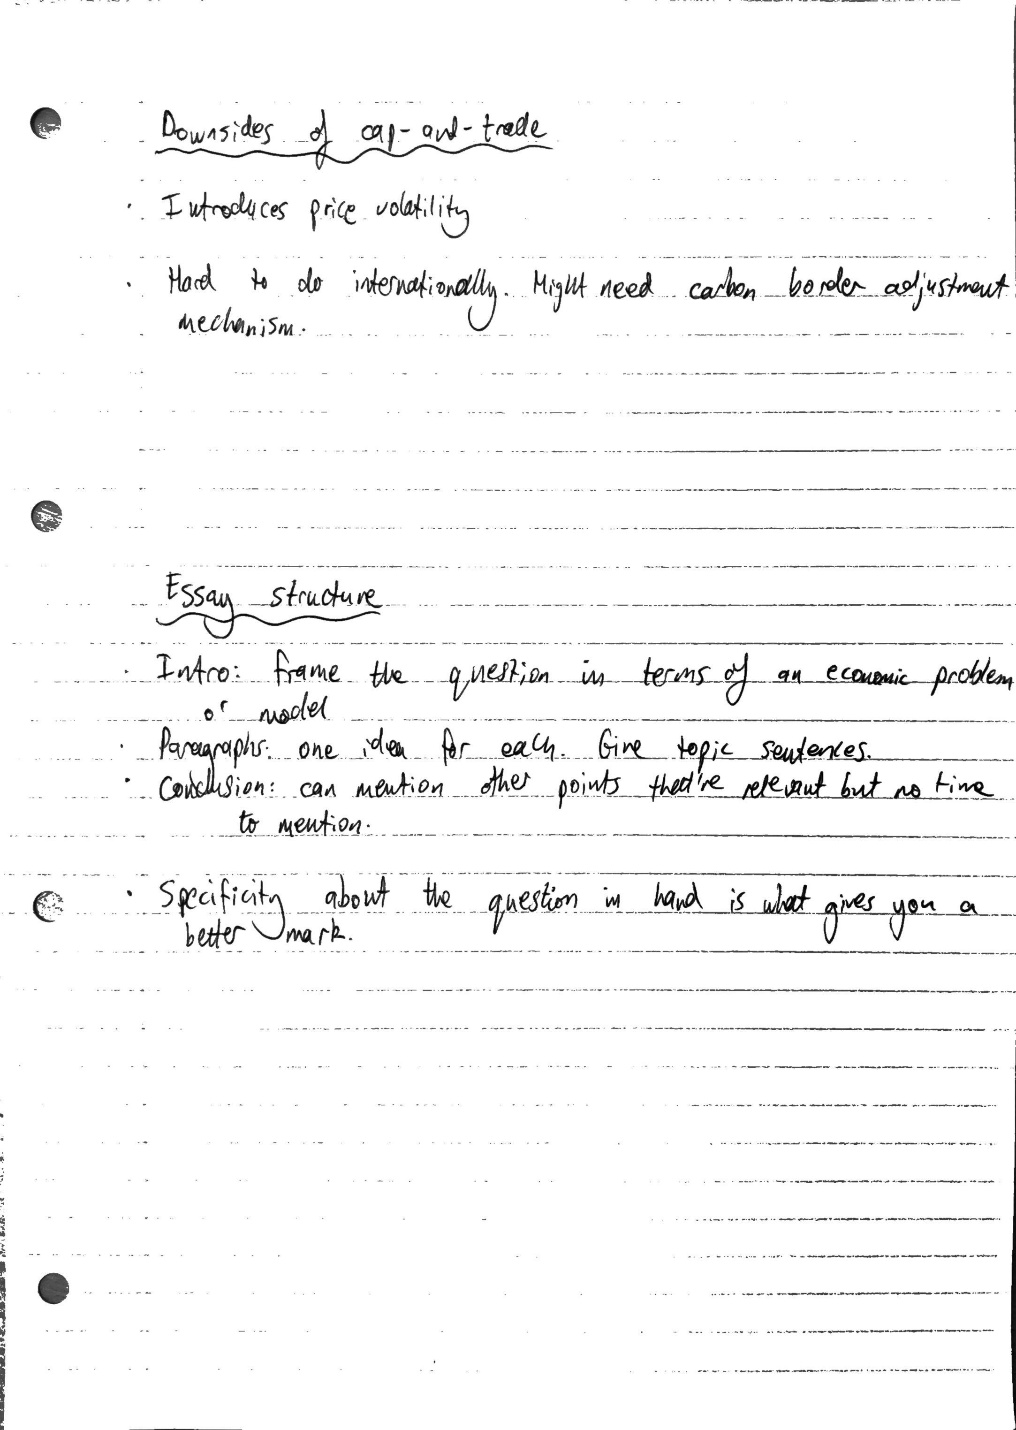 Downsides of cap-and-trade
· Introduces price volatility
· Hard to do internationally. Might need carbon border adjustment
mechanism.
Essay structure
· Intro: frame the question in terms of an economic problem
or model
· Paragraphs: one idea for each. Give topic sentences.
· Conclusion: can mention other points relevant but no time
to mention.
· Specificity about the question in hand is what gives you a
better mark.